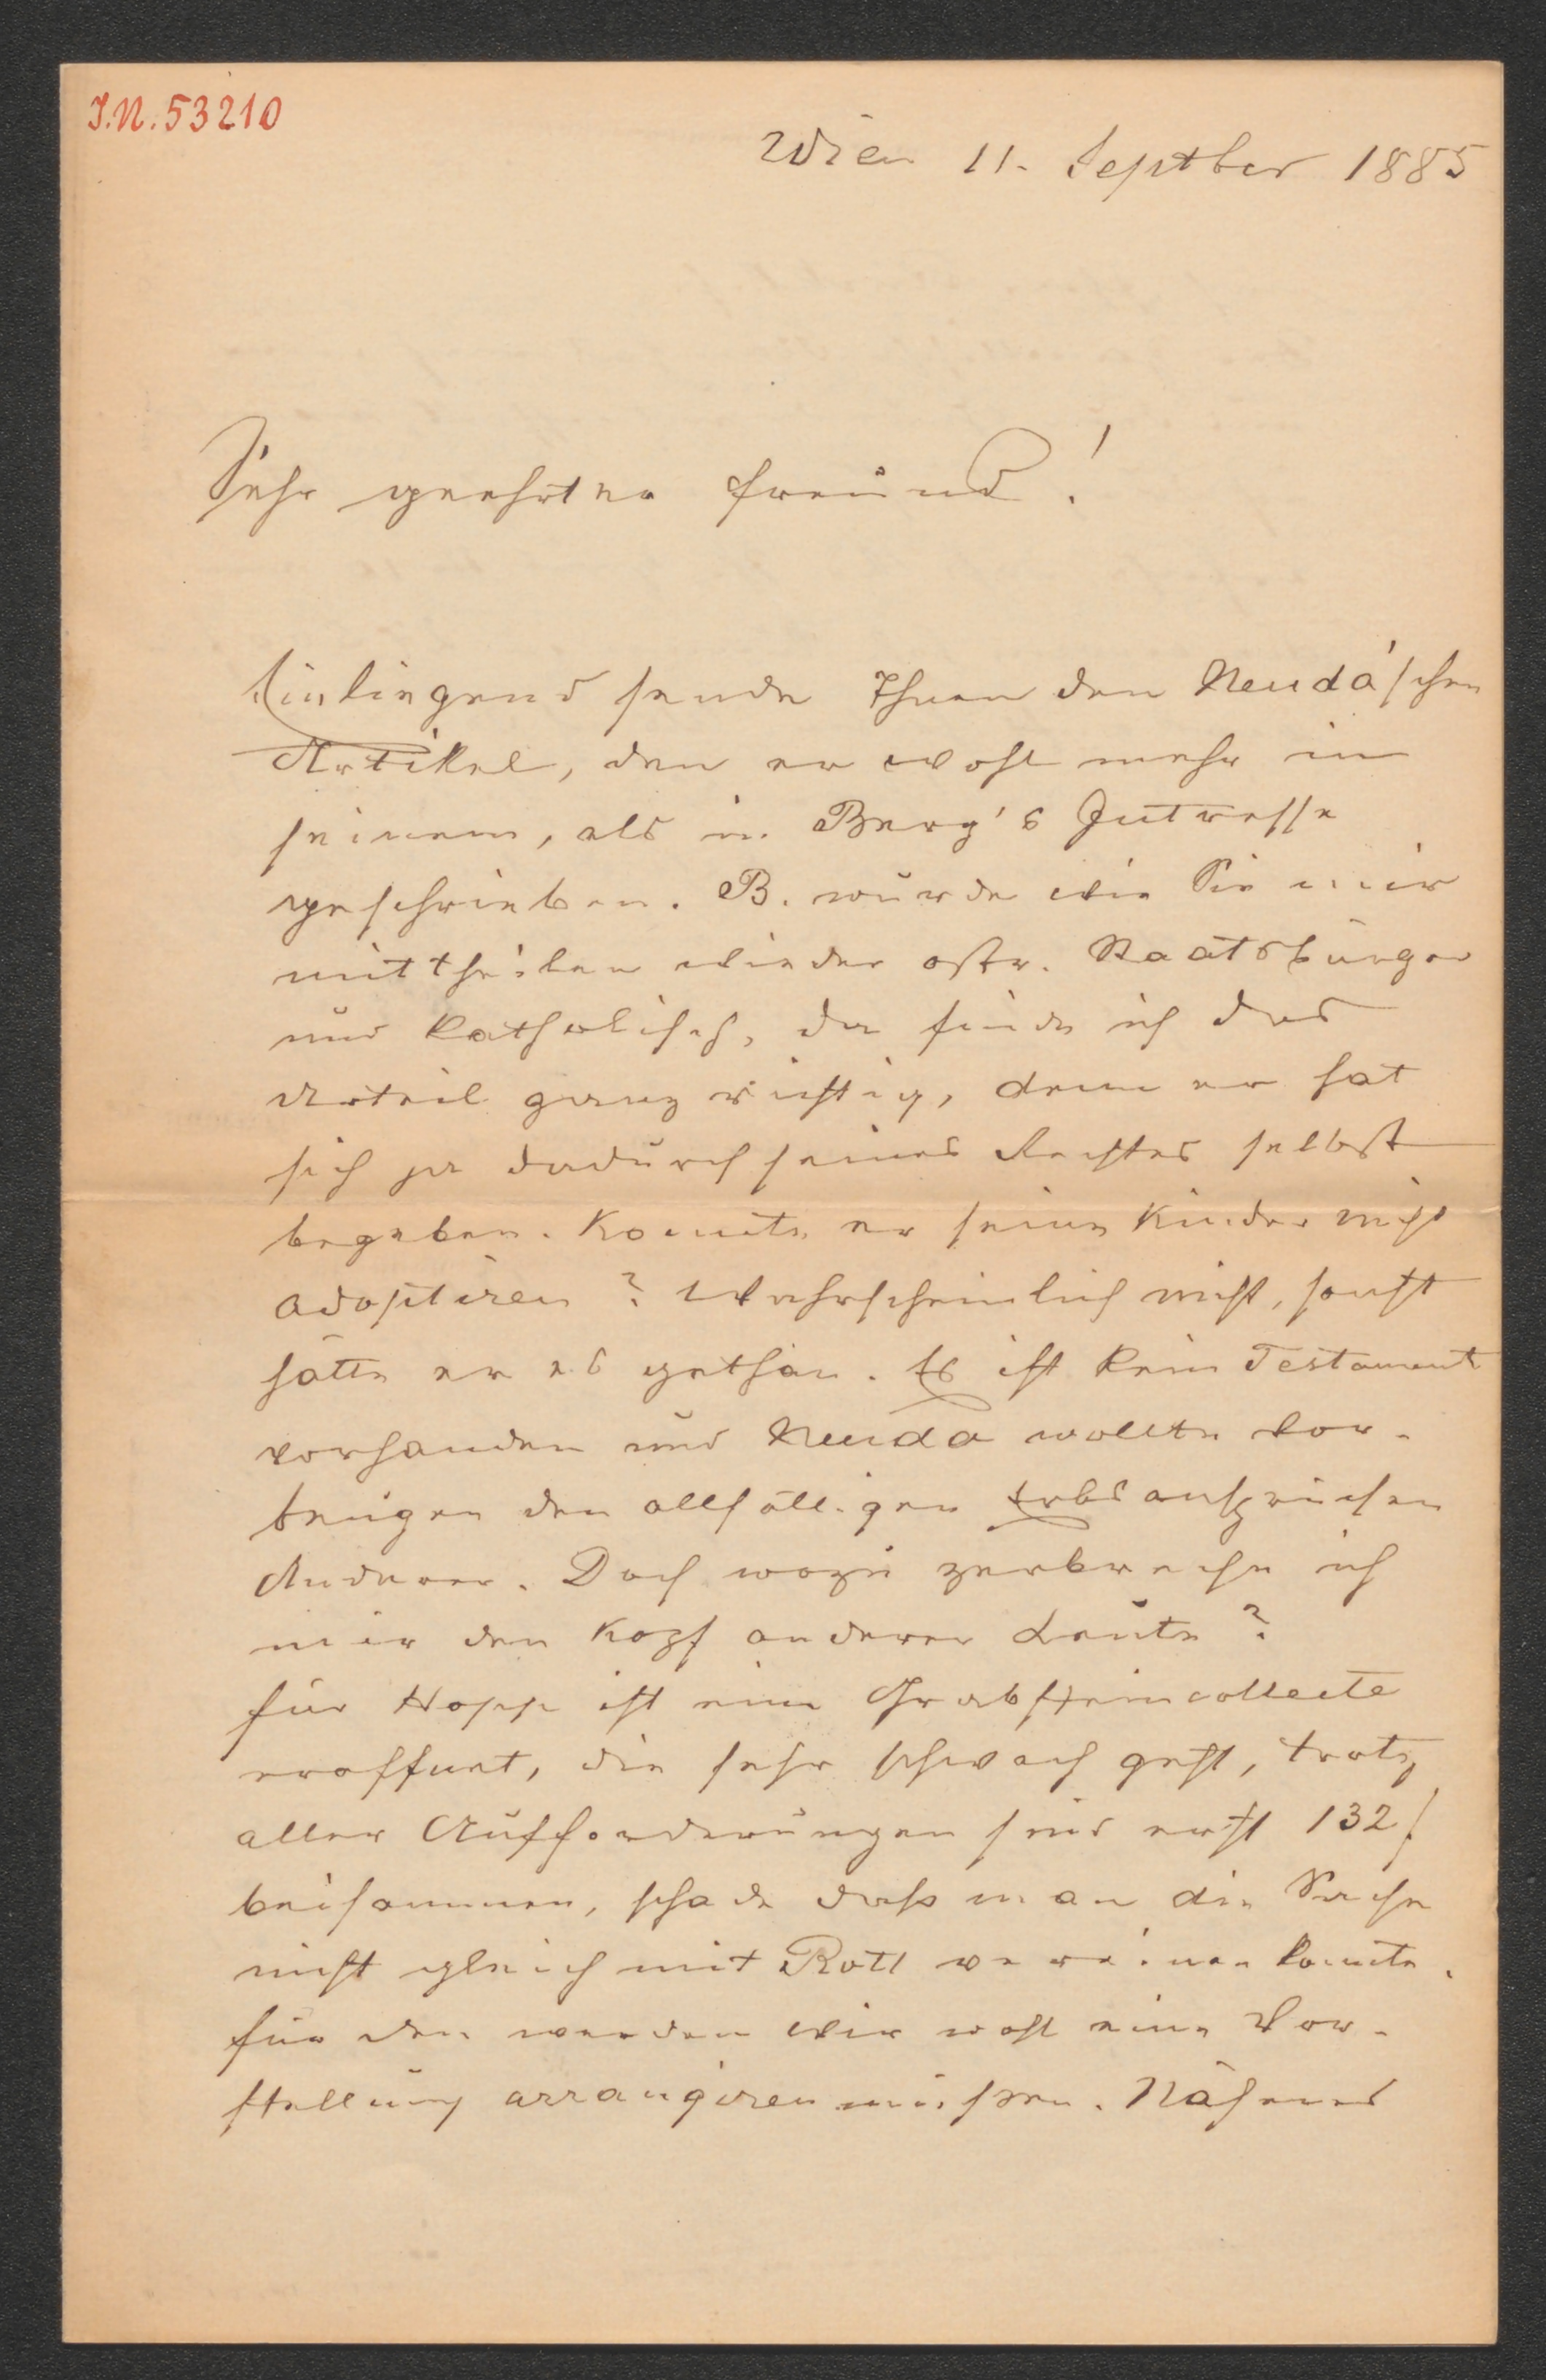 I.N. 53210
Wien 11. Septber 1885
Sehr geehrter Freund!
Einliegend sende Ihnen den Neuda'schen
Artikel, den er wohl mehr in
seinem, als in Berg's Intresse
geschrieben. B. wurde wie Sie mir
mittheilen wieder östr. Staatsbürger
und katholisch, da finde ich das
Urteil ganz richtig, denn er hat
sich ja dadurch seines Rechtes selbst
begeben. Konnte er seine Kinder nicht
adoptiren? Wahrscheinlich nicht, sonst
hätte er es gethan. Es ist kein Testament
vorhanden und Neuda wollte vor-
beugen den allfälligen Erbsansprüchen
Anderer. Doch wozu zerbreche ich
mir den Kopf anderer Leute?
Für Hopp ist eine Grabsteincollecte
eröffnet, die sehr schwach geht, trotz
aller Aufforderungen sind erst 132 f
beisammen, schade daß man die Sache
nicht gleich mit Rott vereinen konnte.
Für den werden wir wohl eine Vor-
stellung arrangiren müssen. Näheres